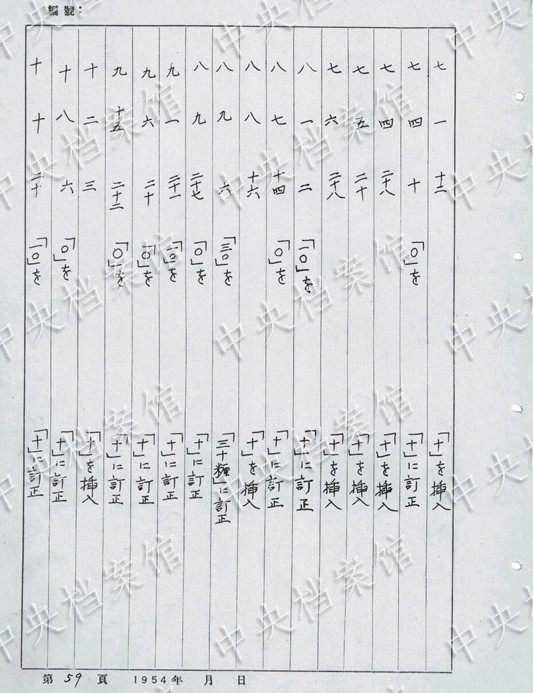 編號：
七 一 十二 「十」を挿入
七 四 十 「〇」を 「十」に訂正
七 四 二十八 「十」を挿入
七 五 二十 「十」を挿入
七 六 二十八 「十」を挿入
八 一 二 「一〇」を 「十」に訂正
八 七 十四 「〇」を 「十」に訂正
八 八 十六 「十」を挿入
八 九 六 「三〇」を 「三十糎」に訂正
八 九 二十七 「〇」を 「十」に訂正
九 一 二十一 「一〇」を 「十」に訂正
九 六 二十 「一〇」を 「十」に訂正
九 十五 二十三 「〇」を 「十」に訂正
十 二 三 「十」を挿入
十 八 六 「〇」を 「十」に訂正
十 十 二十 「一〇」を 「十」に訂正
第 59 頁 1954年 月 日
中央档案馆